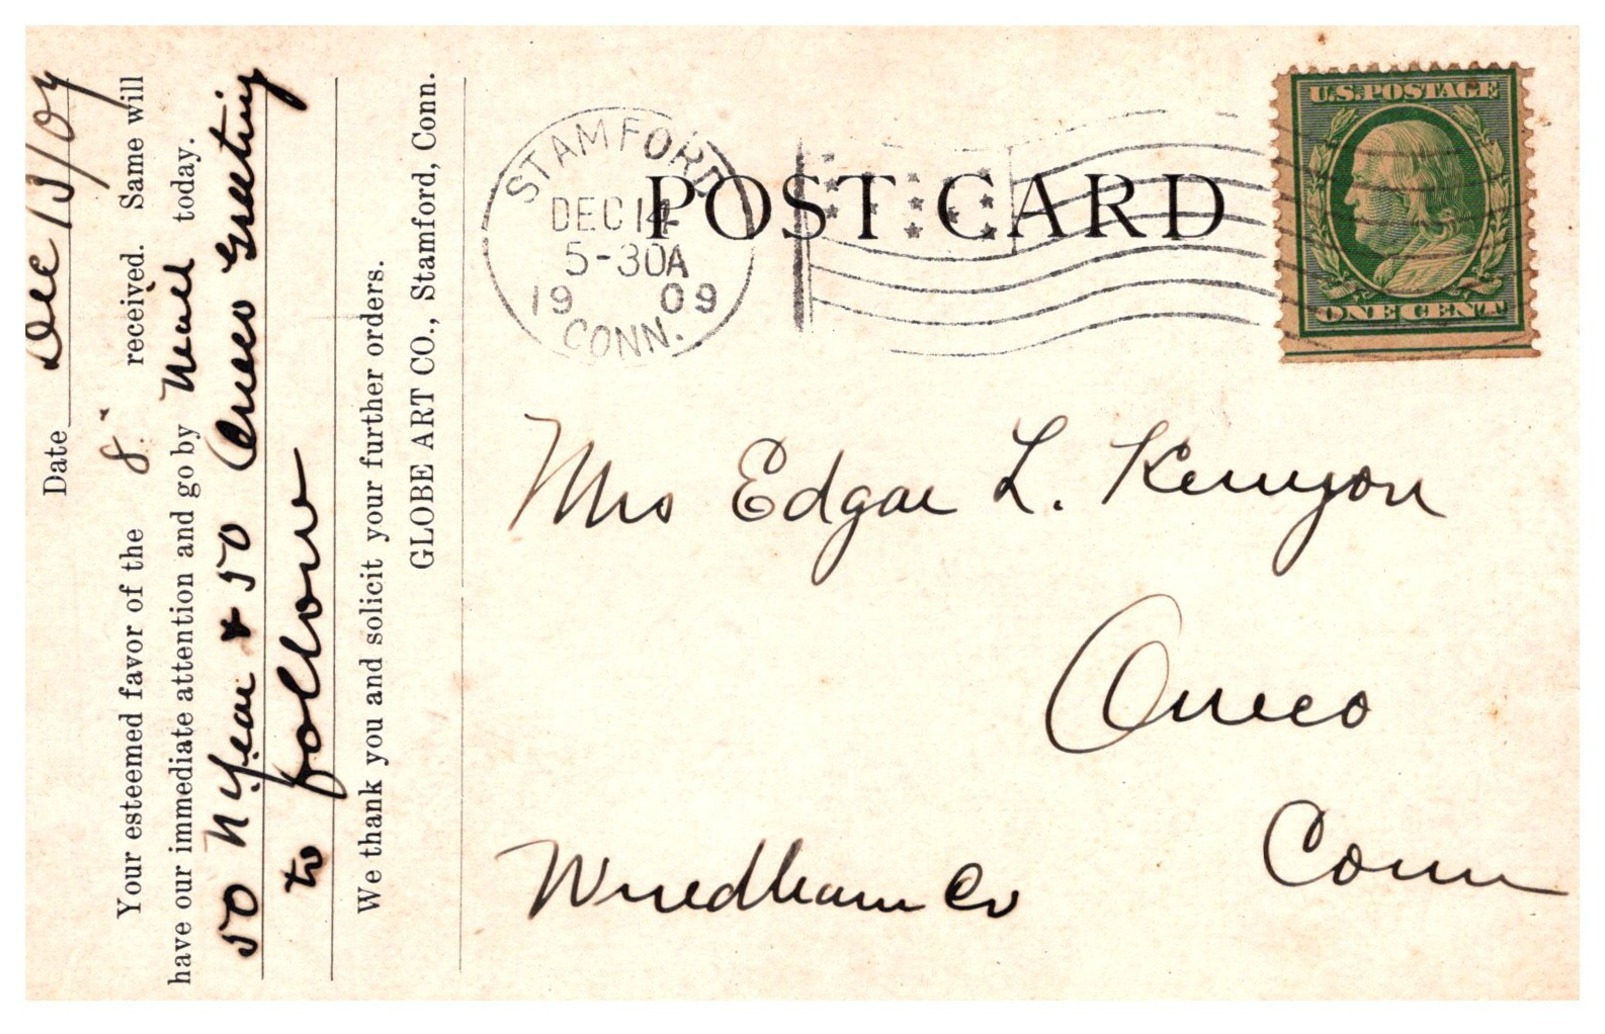 Date Dec 13/09
Your esteemed favor of the 8" received. Same will
have our immediate attention and go by Mail today.
50 N Year + 50 Oneco Greeting
to follow
We thank you and solicit your further orders.
GLOBE ART CO., Stamford, Conn.
STAMFORD
DEC 14
5-30A
1909
CONN.
POST CARD
U.S. POSTAGE
ONE CENT
Mrs Edgar L. Kenyon
Oneco
Conn
Windham Co